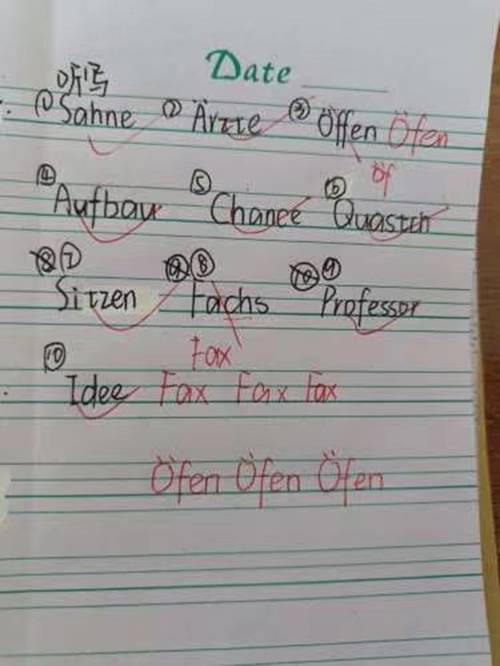 Date
听写
① Sahne ② Ärzte ③ Öffen Öfen
öf
④ Aufbau ⑤ Chance ⑥ Quastch
⑦ Sitzen ⑧ Fachs ⑨ Professor
Fax
⑩ Idee Fax Fax Fax
Öfen Öfen Öfen